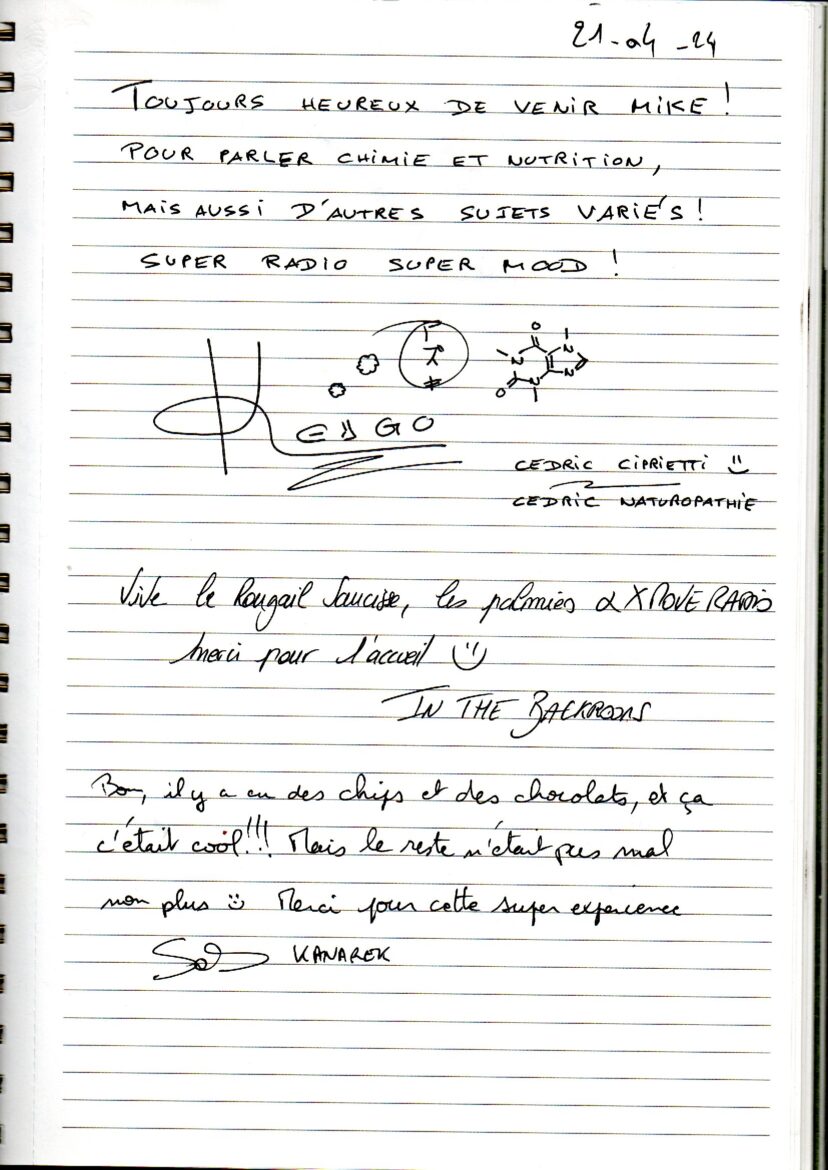 21-04-24
TOUJOURS HEUREUX DE VENIR MIKE !
POUR PARLER CHIMIE ET NUTRITION,
MAIS AUSSI D'AUTRES SUJETS VARIÉS !
SUPER RADIO SUPER MOOD !
CEDRIC CIPRIETTI
CEDRIC NATUROPATHIE
Vive le Rougail Saucisse, les palmiers & XMOVE RADIO
Merci pour l'accueil
IN THE BACKROOMS
Bon, il y a eu des chips et des chocolats, et ça
c'était cool!!! Mais le reste n'était pas mal
non plus Merci pour cette super expérience
KANAREK